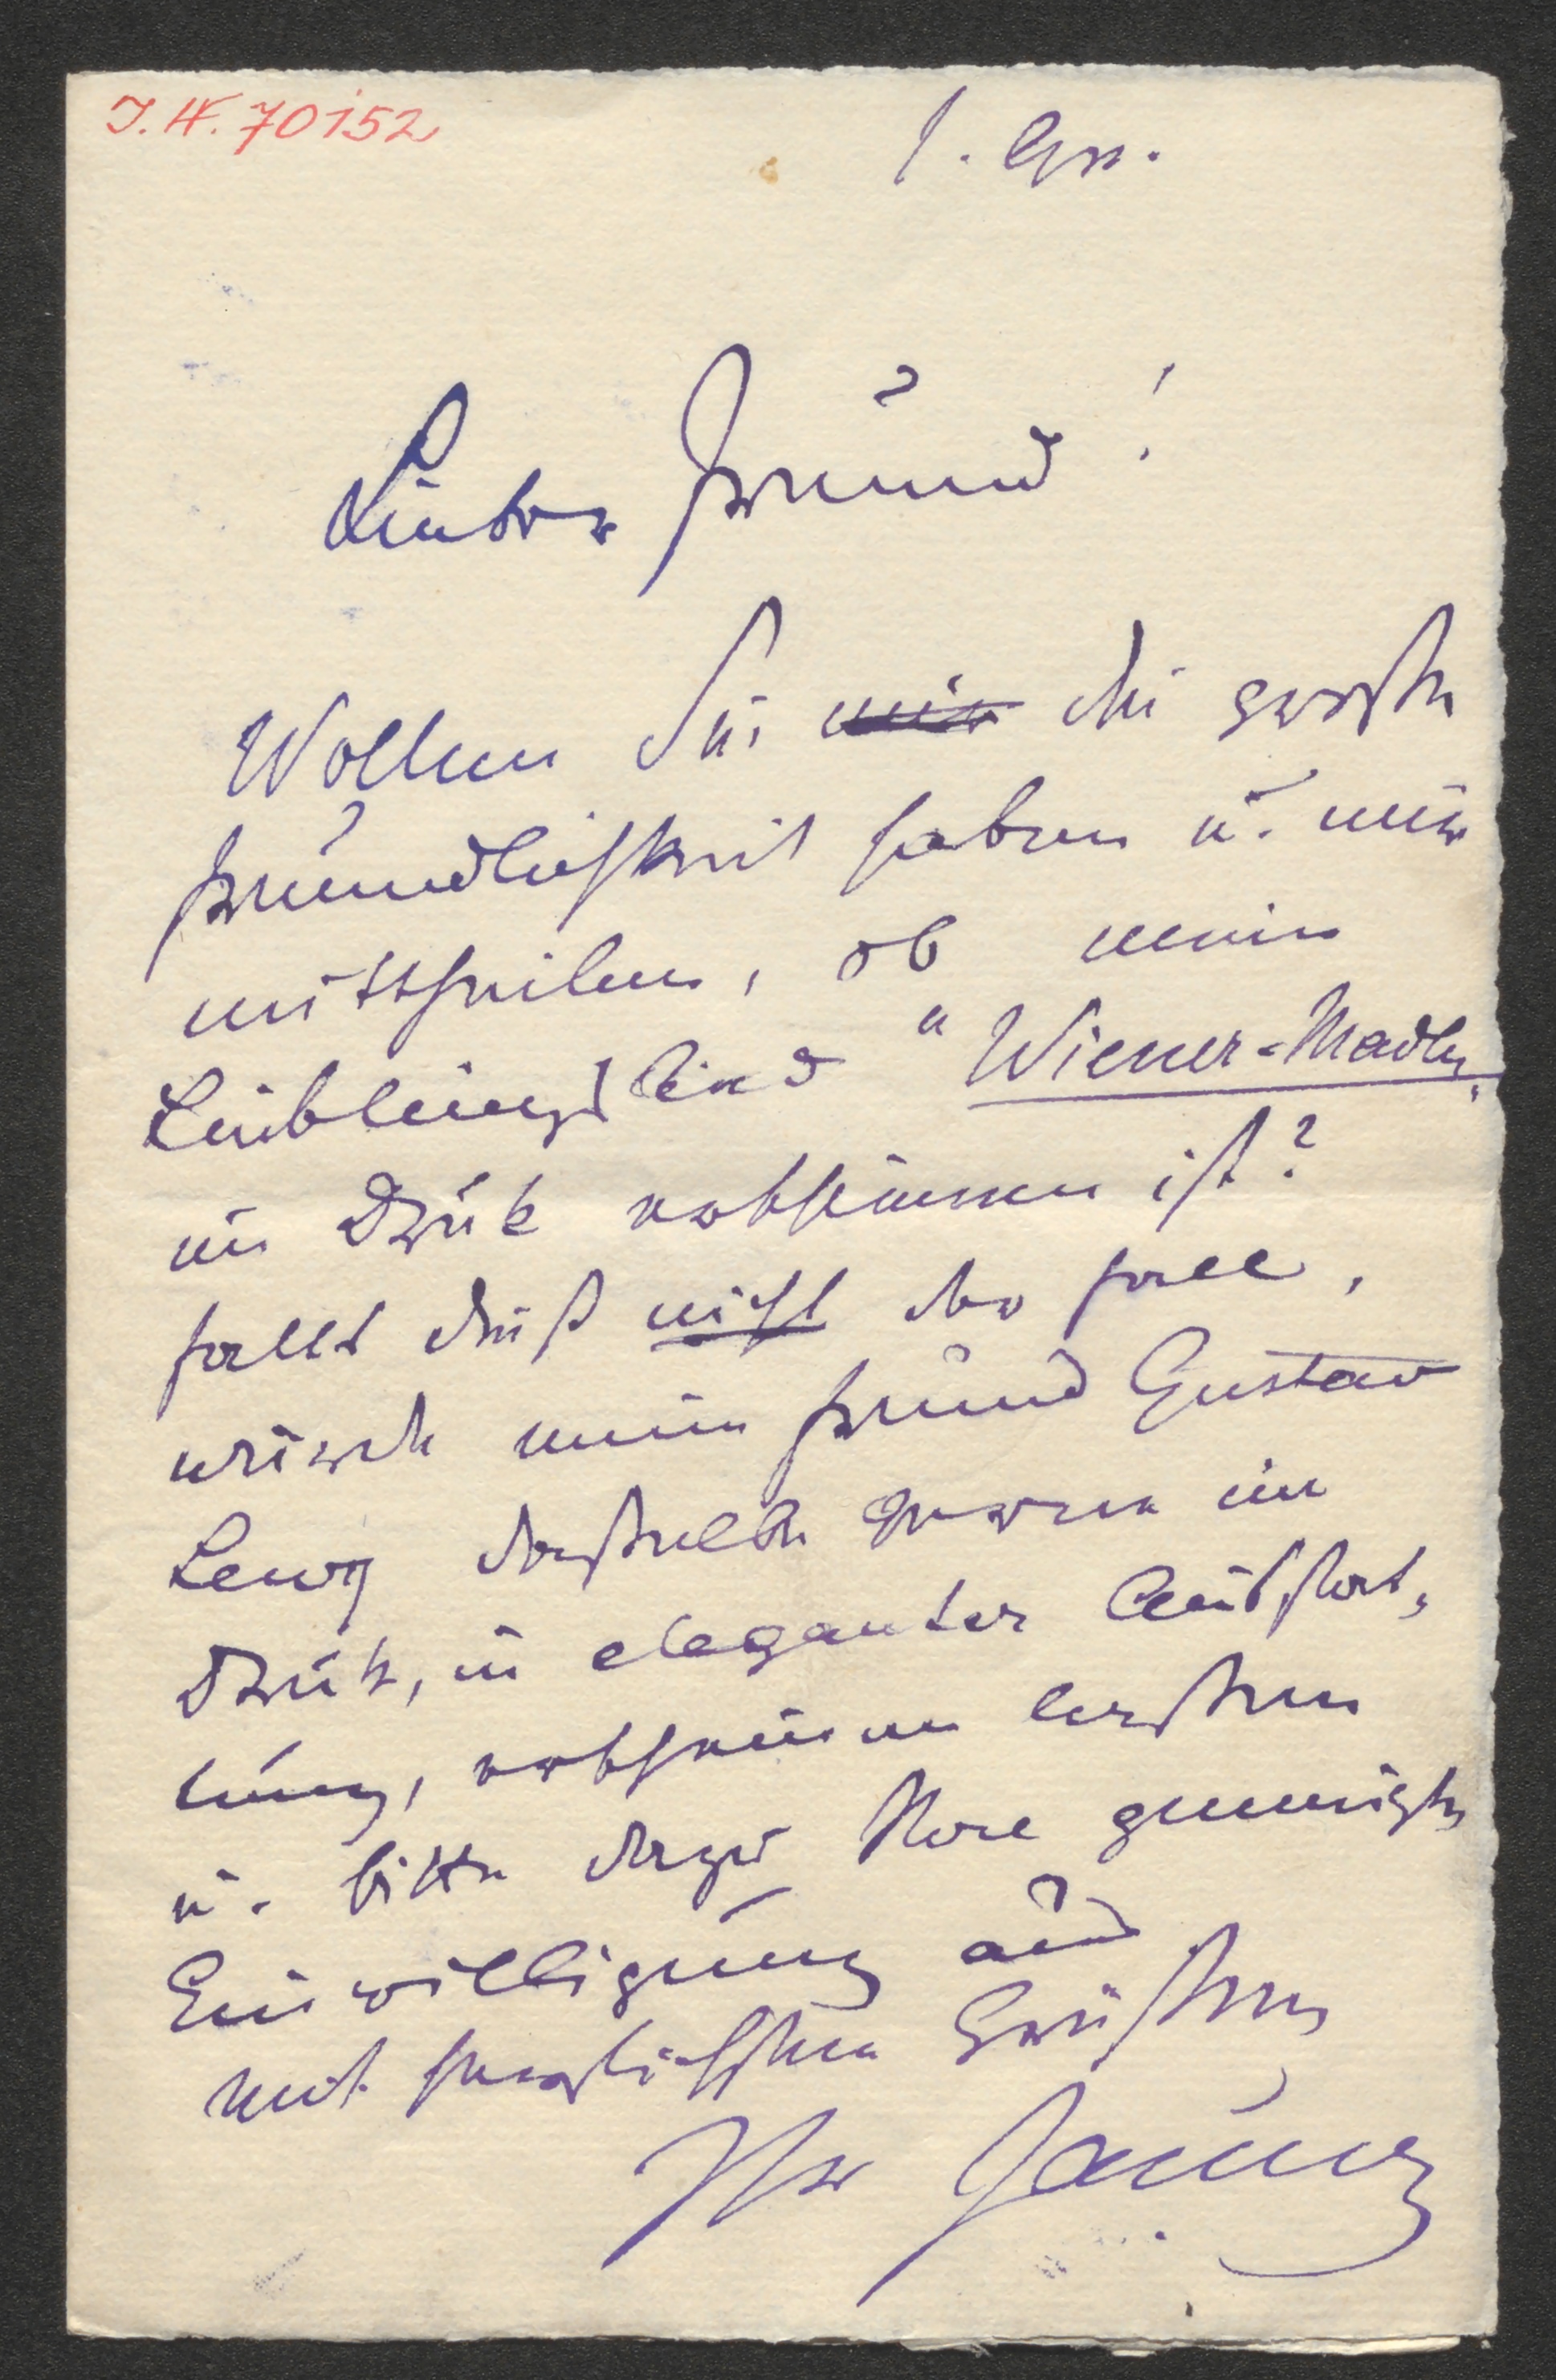 I. N. 70152
Lieber Freund!
Wollen Sie mir die große
Freundlichkeit haben u. mir
mittheilen, ob mein
Lieblingslied "Wiener-Madln"
in Druck erschienen ist?
Falls dieß nicht der Fall,
würde mein Freund Gustav
Lewy dasselbe gerne im
Druck, in eleganter Ausstat-
tung, erscheinen lassen
u. bitte dazu Ihre geneigte
Einwilligung aus
mit herzlichsten Grüßen
Ihr Jauner